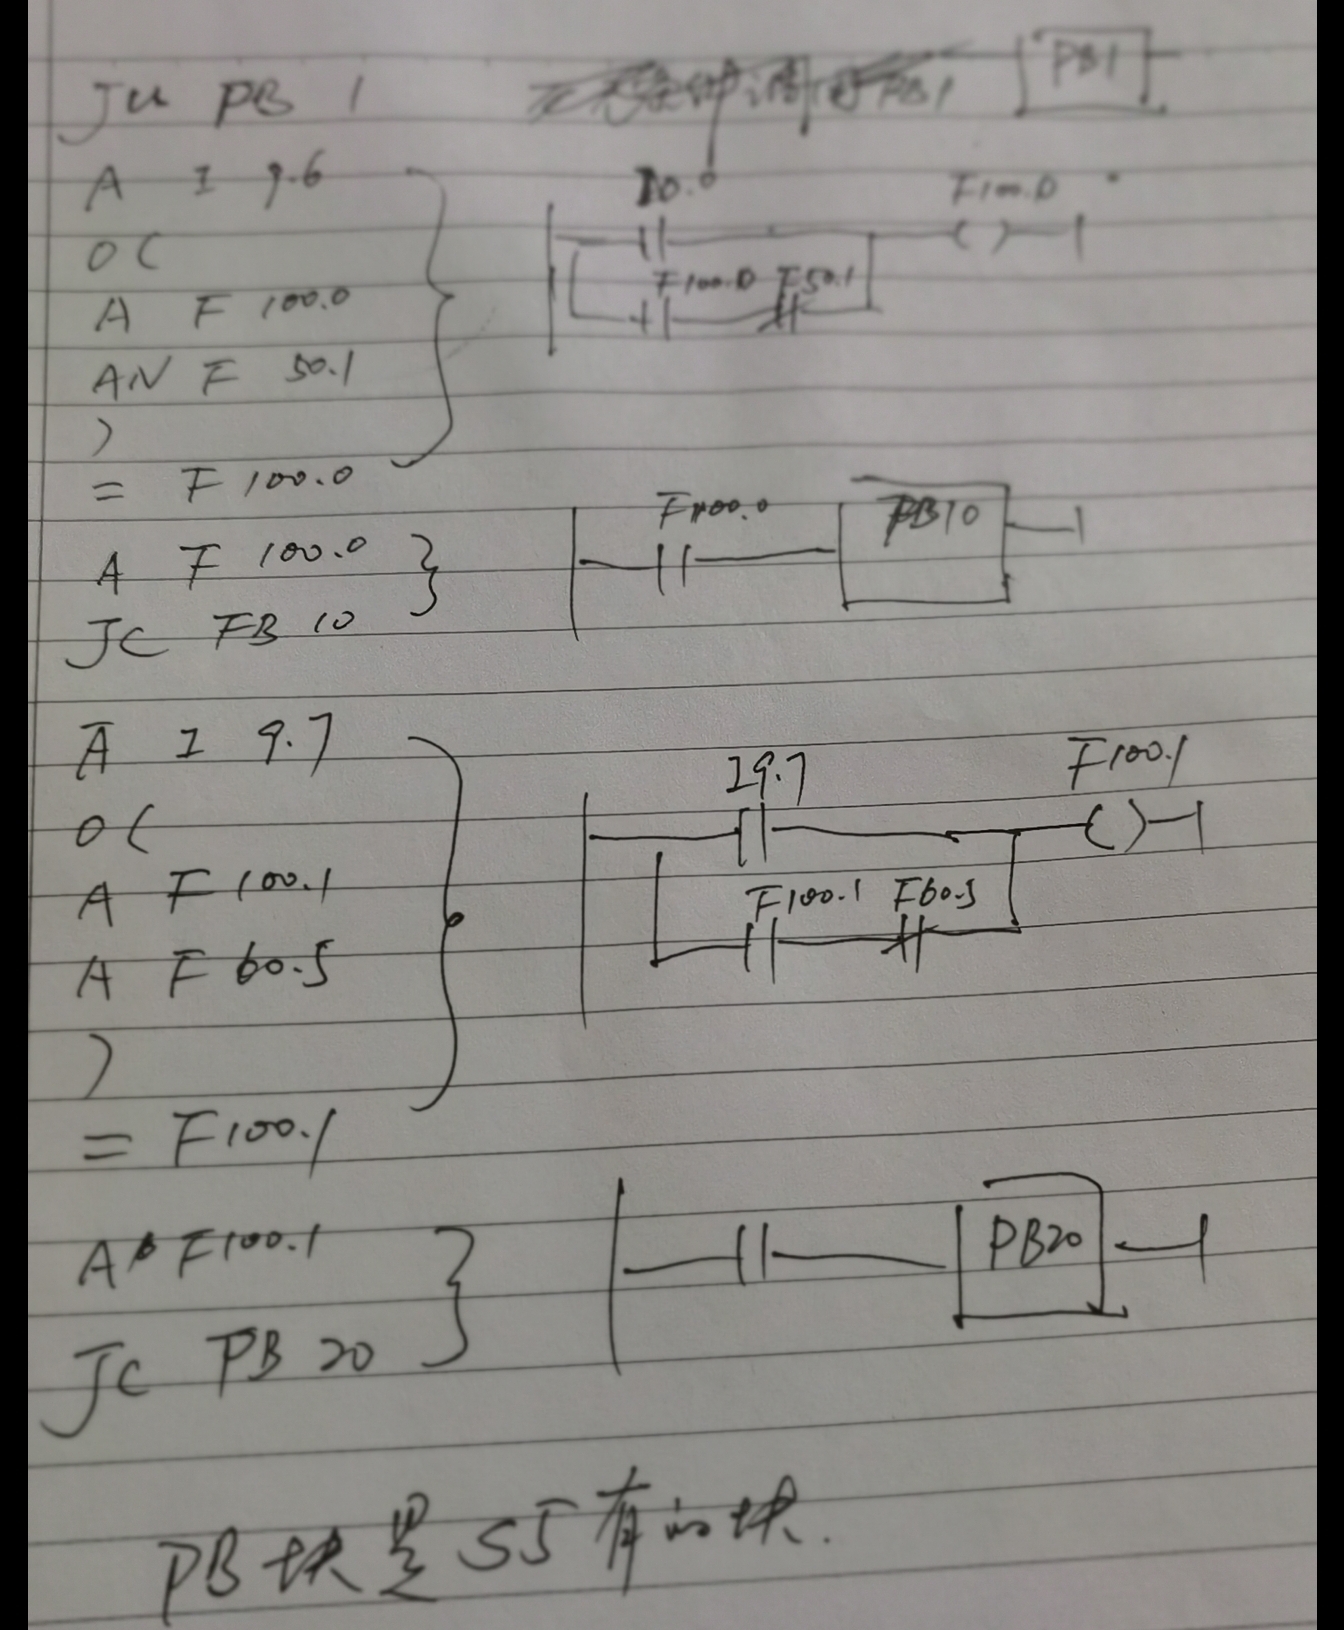 JU PB 1
PB1
A I 9.6
O(
A F 100.0
AN F 50.1
)
= F 100.0
F100.0
F100.0 F50.1
A F 100.0
JC FB 10
F100.0
PB10
A I 9.7
O(
A F 100.1
A F 60.5
)
= F100.1
I9.7
F100.1
F100.1 F60.5
A F100.1
JC PB 20
PB20
PB块是S5有的块.